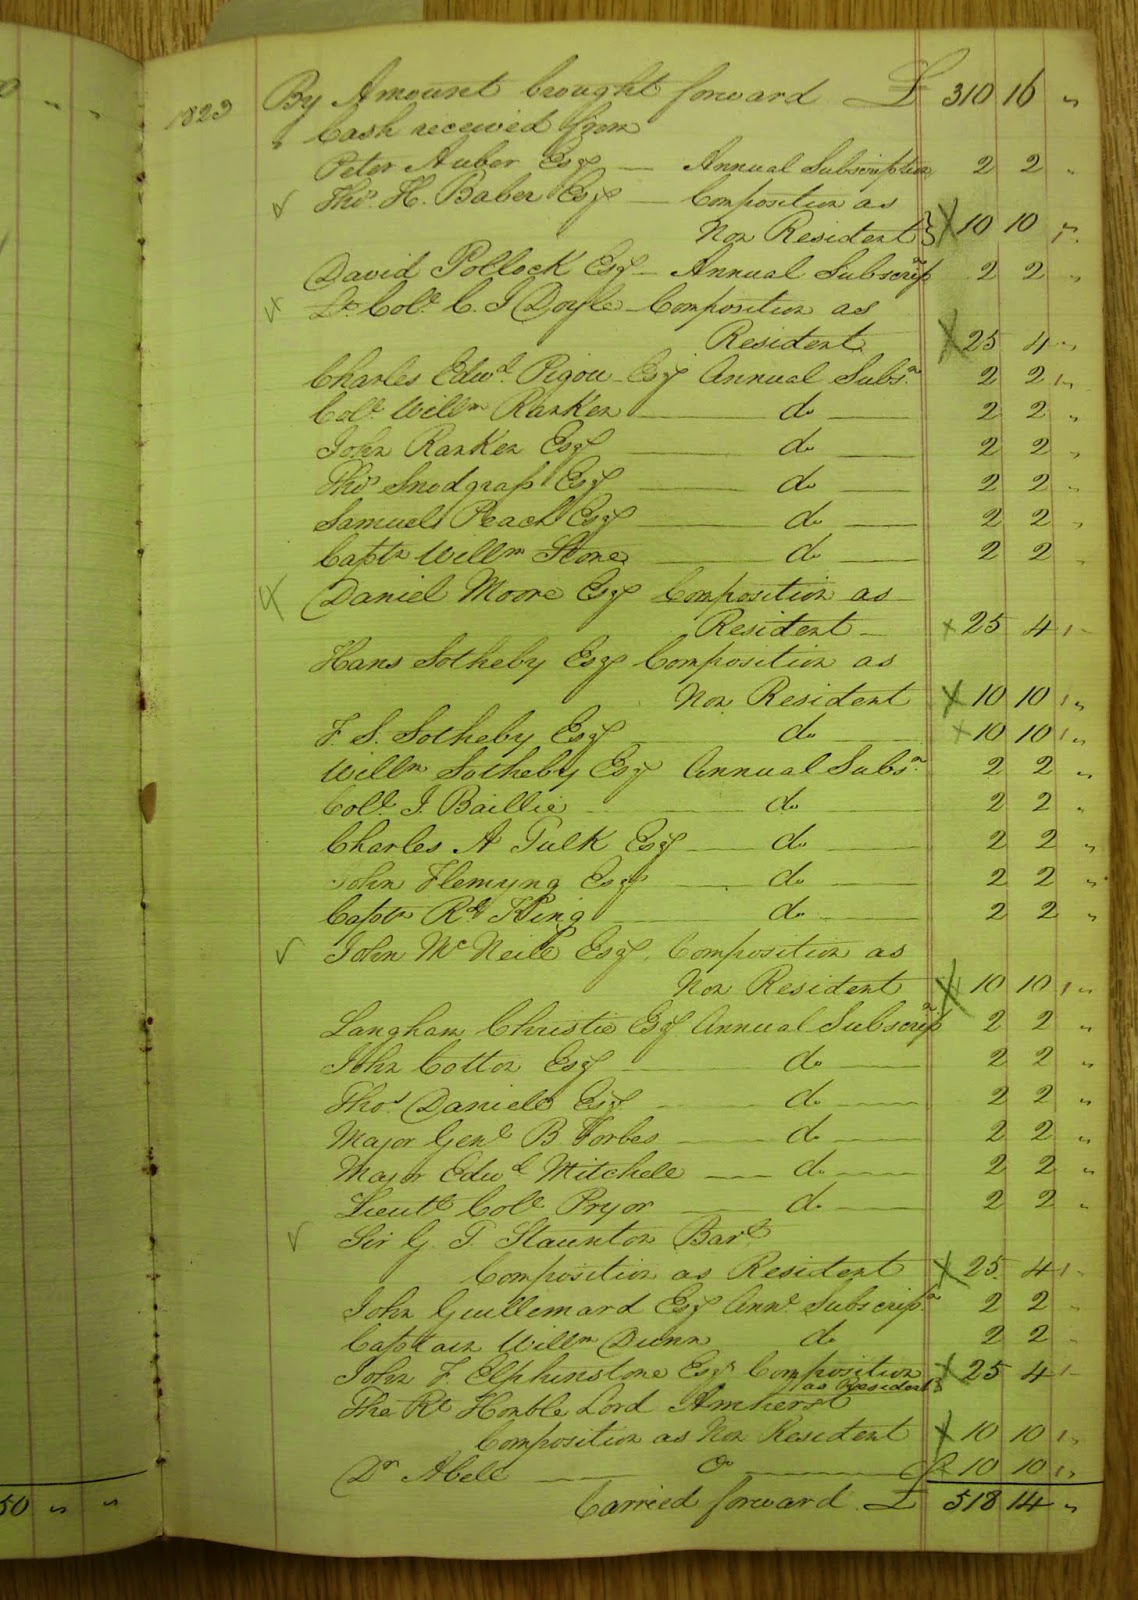 1823 By Amount brought forward £ 310 16 "
Cash received from
Peter Auber Esqr — Annual Subscription 2 2 "
Thos. H. Baber Esqr — Composition as
Non Resident } X 10 10 "
David Pollock Esqr — Annual Subscripn 2 2 "
Lt. Col. C. J Doyle — Composition as
Resident X 25 4 "
Charles Edwd. Pigou Esqr Annual Subsn. 2 2 "
Coll. Willm Ranken — do — 2 2 "
John Ranken Esqr — do — 2 2 "
Thos Snodgrass Esqr — do — 2 2 "
Samuel Peach Esqr — do — 2 2 "
Captn Willm Stone — do — 2 2
Daniel Moore Esqr Composition as
Resident — x 25 4 "
Hans Sotheby Esqr Composition as
Non Resident X 10 10 "
F. S. Sotheby Esqr — do — x 10 10 "
Willm Sotheby Esqr Annual Subsn. 2 2 "
Coll. J. Baillie — do — 2 2 "
Charles A Tulk Esqr — do — 2 2 "
John Flemyng Esqr — do — 2 2 "
Captn Rd King — do — 2 2 "
John McNeile Esqr. Composition as
Non Resident X 10 10 "
Langham Christie Esqr Annual Subscripn 2 2 "
John Cotton Esqr — do — 2 2 "
Thos. Daniell Esqr — do — 2 2 "
Major Genl B. Forbes — do — 2 2 "
Major Edwd Mitchell — do — 2 2 "
Lieutt Coll Pryor — do — 2 2 "
Sir G. T. Staunton Bart
Composition as Resident X 25 4 "
John Guillemard Esqr Annl Subscripn 2 2 "
Captain Willm Dunn do 2 2 "
John F. Elphinstone Esqr Composition X 25 4 "
as Resident }
The Rt Honble Lord Amherst
Composition as Non Resident X 10 10 "
Dr Abell — do — X 10 10 "
Carried forward £ 518 14 "
50 " "